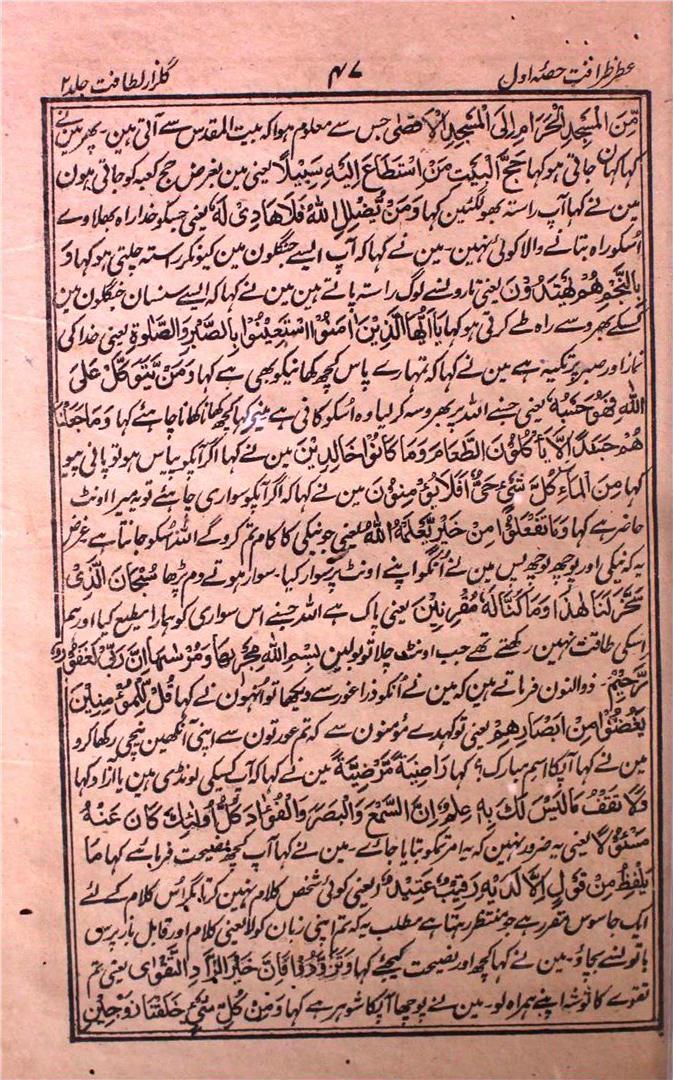 عطر ظرافت حصۂ اول
۴۷
گلزار لطافت جلد ۲
مِّنَ الْمَسْجِدِ الْحَرَامِ اِلَى الْمَسْجِدِ الْاَقْصٰى جس سے معلوم ہوا کہ بیت المقدس سے آتی ہین۔ پھر مین نے
کہا کہان جاتی ہو کہا حَجُّ الْبَيْتِ مَنِ اسْتَطَاعَ اِلَيْهِ سَبِيْلًا یعنی مین بغرض حج کعبہ کو جاتی ہون
مین نے کہا آپ راستہ بھولگئین کہا وَمَنْ يُّضْلِلِ اللّٰهُ فَلَا هَادِىَ لَهٗ یعنی جسکو خدا راہ بھلاوے
اُسکو راہ بتانے والا کوئی نہین۔ مین نے کہا کہ آپ ایسے جنگلون مین کیونکر رستہ چلتی ہو کہا وَ
بِالنَّجْمِ هُمْ يَهْتَدُوْنَ یعنی تارونسے لوگ راستہ پاتے ہین مین نے کہا کہ ایسے سنسان جنگلون مین
کسکے بھروسے راہ طے کرتی ہو کہا يَا اَيُّهَا الَّذِيْنَ اٰمَنُوا اسْتَعِيْنُوْا بِالصَّبْرِ وَالصَّلٰوةِ یعنی خدا کی
نماز اور صبر پر تکیہ ہے مین نے کہا کہ تمہارے پاس کچھ کھانیکو بھی ہے کہا وَمَنْ يَّتَوَكَّلْ عَلَى
اللّٰهِ فَهُوَ حَسْبُهٗ یعنی جسنے اللہ پر بھروسہ کر لیا وہ اُسکو کافی ہے مینے کہا کچھ کھانا کھانا چاہئے کہا وَمَا جَعَلْنَا
هُمْ جَسَدًا لَّا يَأْكُلُوْنَ الطَّعَامَ وَمَا كَانُوْا خَالِدِيْنَ مین نے کہا اگر آپکو پیاس ہو تو پانی پیو
کہا مِنَ الْمَآءِ كُلَّ شَيْءٍ حَيٍّ اَفَلَا يُؤْمِنُوْنَ مین نے کہا کہ اگر آپکو سواری چاہئے تو میرا اونٹ
حاضر ہے کہا وَمَا تَفْعَلُوْا مِنْ خَيْرٍ يَّعْلَمْهُ اللّٰهُ یعنی جو نیکی کا کام تم کروگے اللہ اُسکو جانتا ہے غرض
یہ کہ نیکی اور پوچھ پوچھ پس مین نے اُنکو اپنے اونٹ پر سوار کیا۔ سوار ہوتے دم پڑھا سُبْحَانَ الَّذِىْ
سَخَّرَ لَنَا هٰذَا وَمَا كُنَّا لَهٗ مُقْرِنِيْنَ یعنی پاک ہے اللہ جسنے اس سواری کو ہمارا مطیع کیا اور ہم
اسکی طاقت نہین رکھتے تھے جب اونٹ چلا تو بولین بِسْمِ اللّٰهِ مَجْرٖىهَا وَمُرْسٰىهَا اِنَّ رَبِّىْ لَغَفُوْرٌ
رَّحِيْمٌ۔ ذوالنون فرماتے ہین کہ مین نے اُنکو ذرا غور سے دیکھا تو اُنہون نے کہا قُلْ لِّلْمُؤْمِنِيْنَ
يَغُضُّوْا مِنْ اَبْصَارِهِمْ یعنی تو کہدے مؤمنون سے کہ تم عورتون سے اپنی آنکھین نیچی رکھا کرو
مین نے کہا آپکا اسم مبارک؟ کہا رَاضِيَةً مَّرْضِيَّةً مین نے کہا کہ آپ کسیکی لونڈی ہین یا آزاد کہا
وَلَا تَقْفُ مَا لَيْسَ لَكَ بِهٖ عِلْمٌ اِنَّ السَّمْعَ وَالْبَصَرَ وَالْفُؤَادَ كُلُّ اُولٰٓئِكَ كَانَ عَنْهُ
مَسْئُوْلًا یعنی یہ ضرور نہین کہ یہ امر تمکو بتایا جاے۔ مین نے کہا آپ کچھ نصیحت فرمائیے کہا مَا
يَلْفِظُ مِنْ قَوْلٍ اِلَّا لَدَيْهِ رَقِيْبٌ عَتِيْدٌ یعنی کوئی شخص کلام نہین کرتا مگر اُس کلام کے لئے
ایک جاسوس مقرر ہے جو منتظر رہتا ہے مطلب یہ کہ تم اپنی زبان کو لایعنی کلام اور قابل بازپرس
باتونسے بچاؤ۔ مین نے کہا کچھ اور نصیحت کیجئے کہا وَتَزَوَّدُوْا فَاِنَّ خَيْرَ الزَّادِ التَّقْوٰى یعنی تم
تقوے کا توشہ اپنے ہمراہ لو۔ مین نے پوچھا آپکا شوہر ہے کہا وَمِنْ كُلِّ شَيْءٍ خَلَقْنَا زَوْجَيْنِ